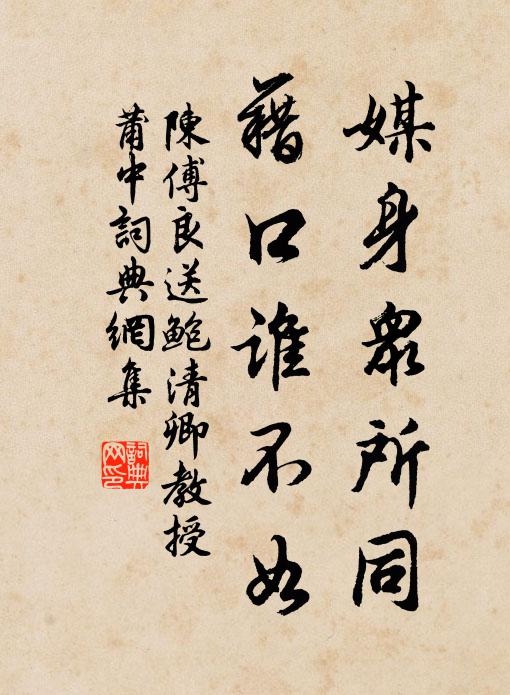 媒身眾所同
藉口誰不如
陳傅良送鮑清卿教授
莆中詞典網集
詞典網印